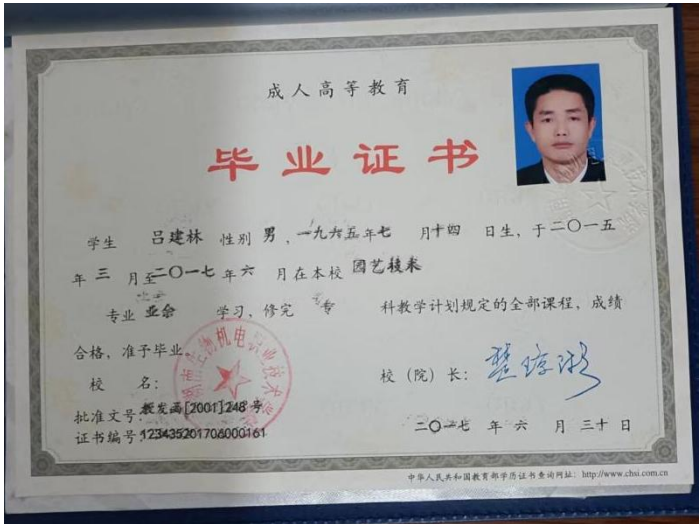 成人高等教育
毕业证书
学生 吕建林 性别 男，一九六五年七 月十四 日生，于二〇一五
年 三 月至二〇一七 年 六 月在本校 园艺技术
专业 业余 学习，修完 专 科教学计划规定的全部课程，成绩
合格，准予毕业
校 名：
校（院）长：
批准文号：教发函[2001]248 号
证书编号：123435201706000161
二〇一七 年 六 月 三十 日
中华人民共和国教育部学历证书查询网址：http://www.chsi.com.cn